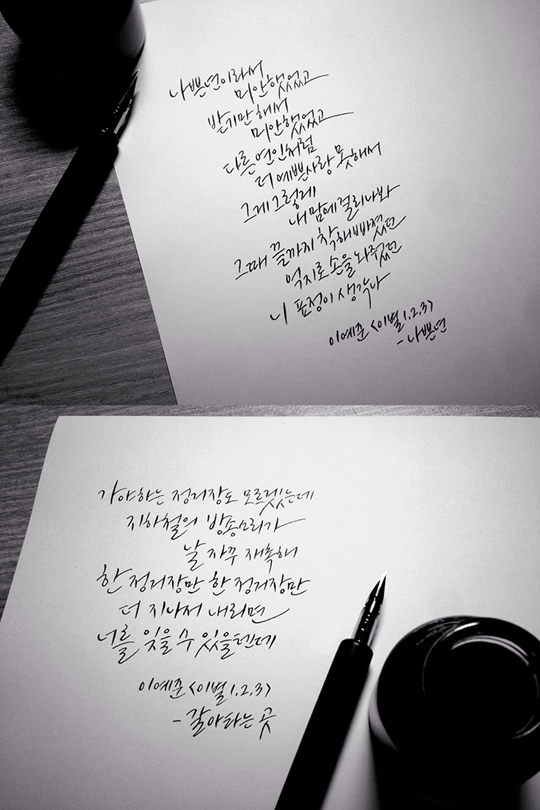 나쁜년이라서
미안했었고
받기만해서
미안했었고
다른연인처럼
더 예쁜사랑 못해서
그게 그렇게
내 맘에 걸리나봐
그때 끝까지 착해빠졌던
억지로 손을 놔줬던
니 표정이 생각나
이예준 <이별 1.2.3>
- 나쁜년
가야하는 정거장도 모르겠는데
지하철의 방송소리가
날 자꾸 재촉해
한 정거장만 한 정거장만
더 지나서 내리면
너를 잊을 수 있을텐데
이예준 <이별 1.2.3>
- 갈아타는 곳